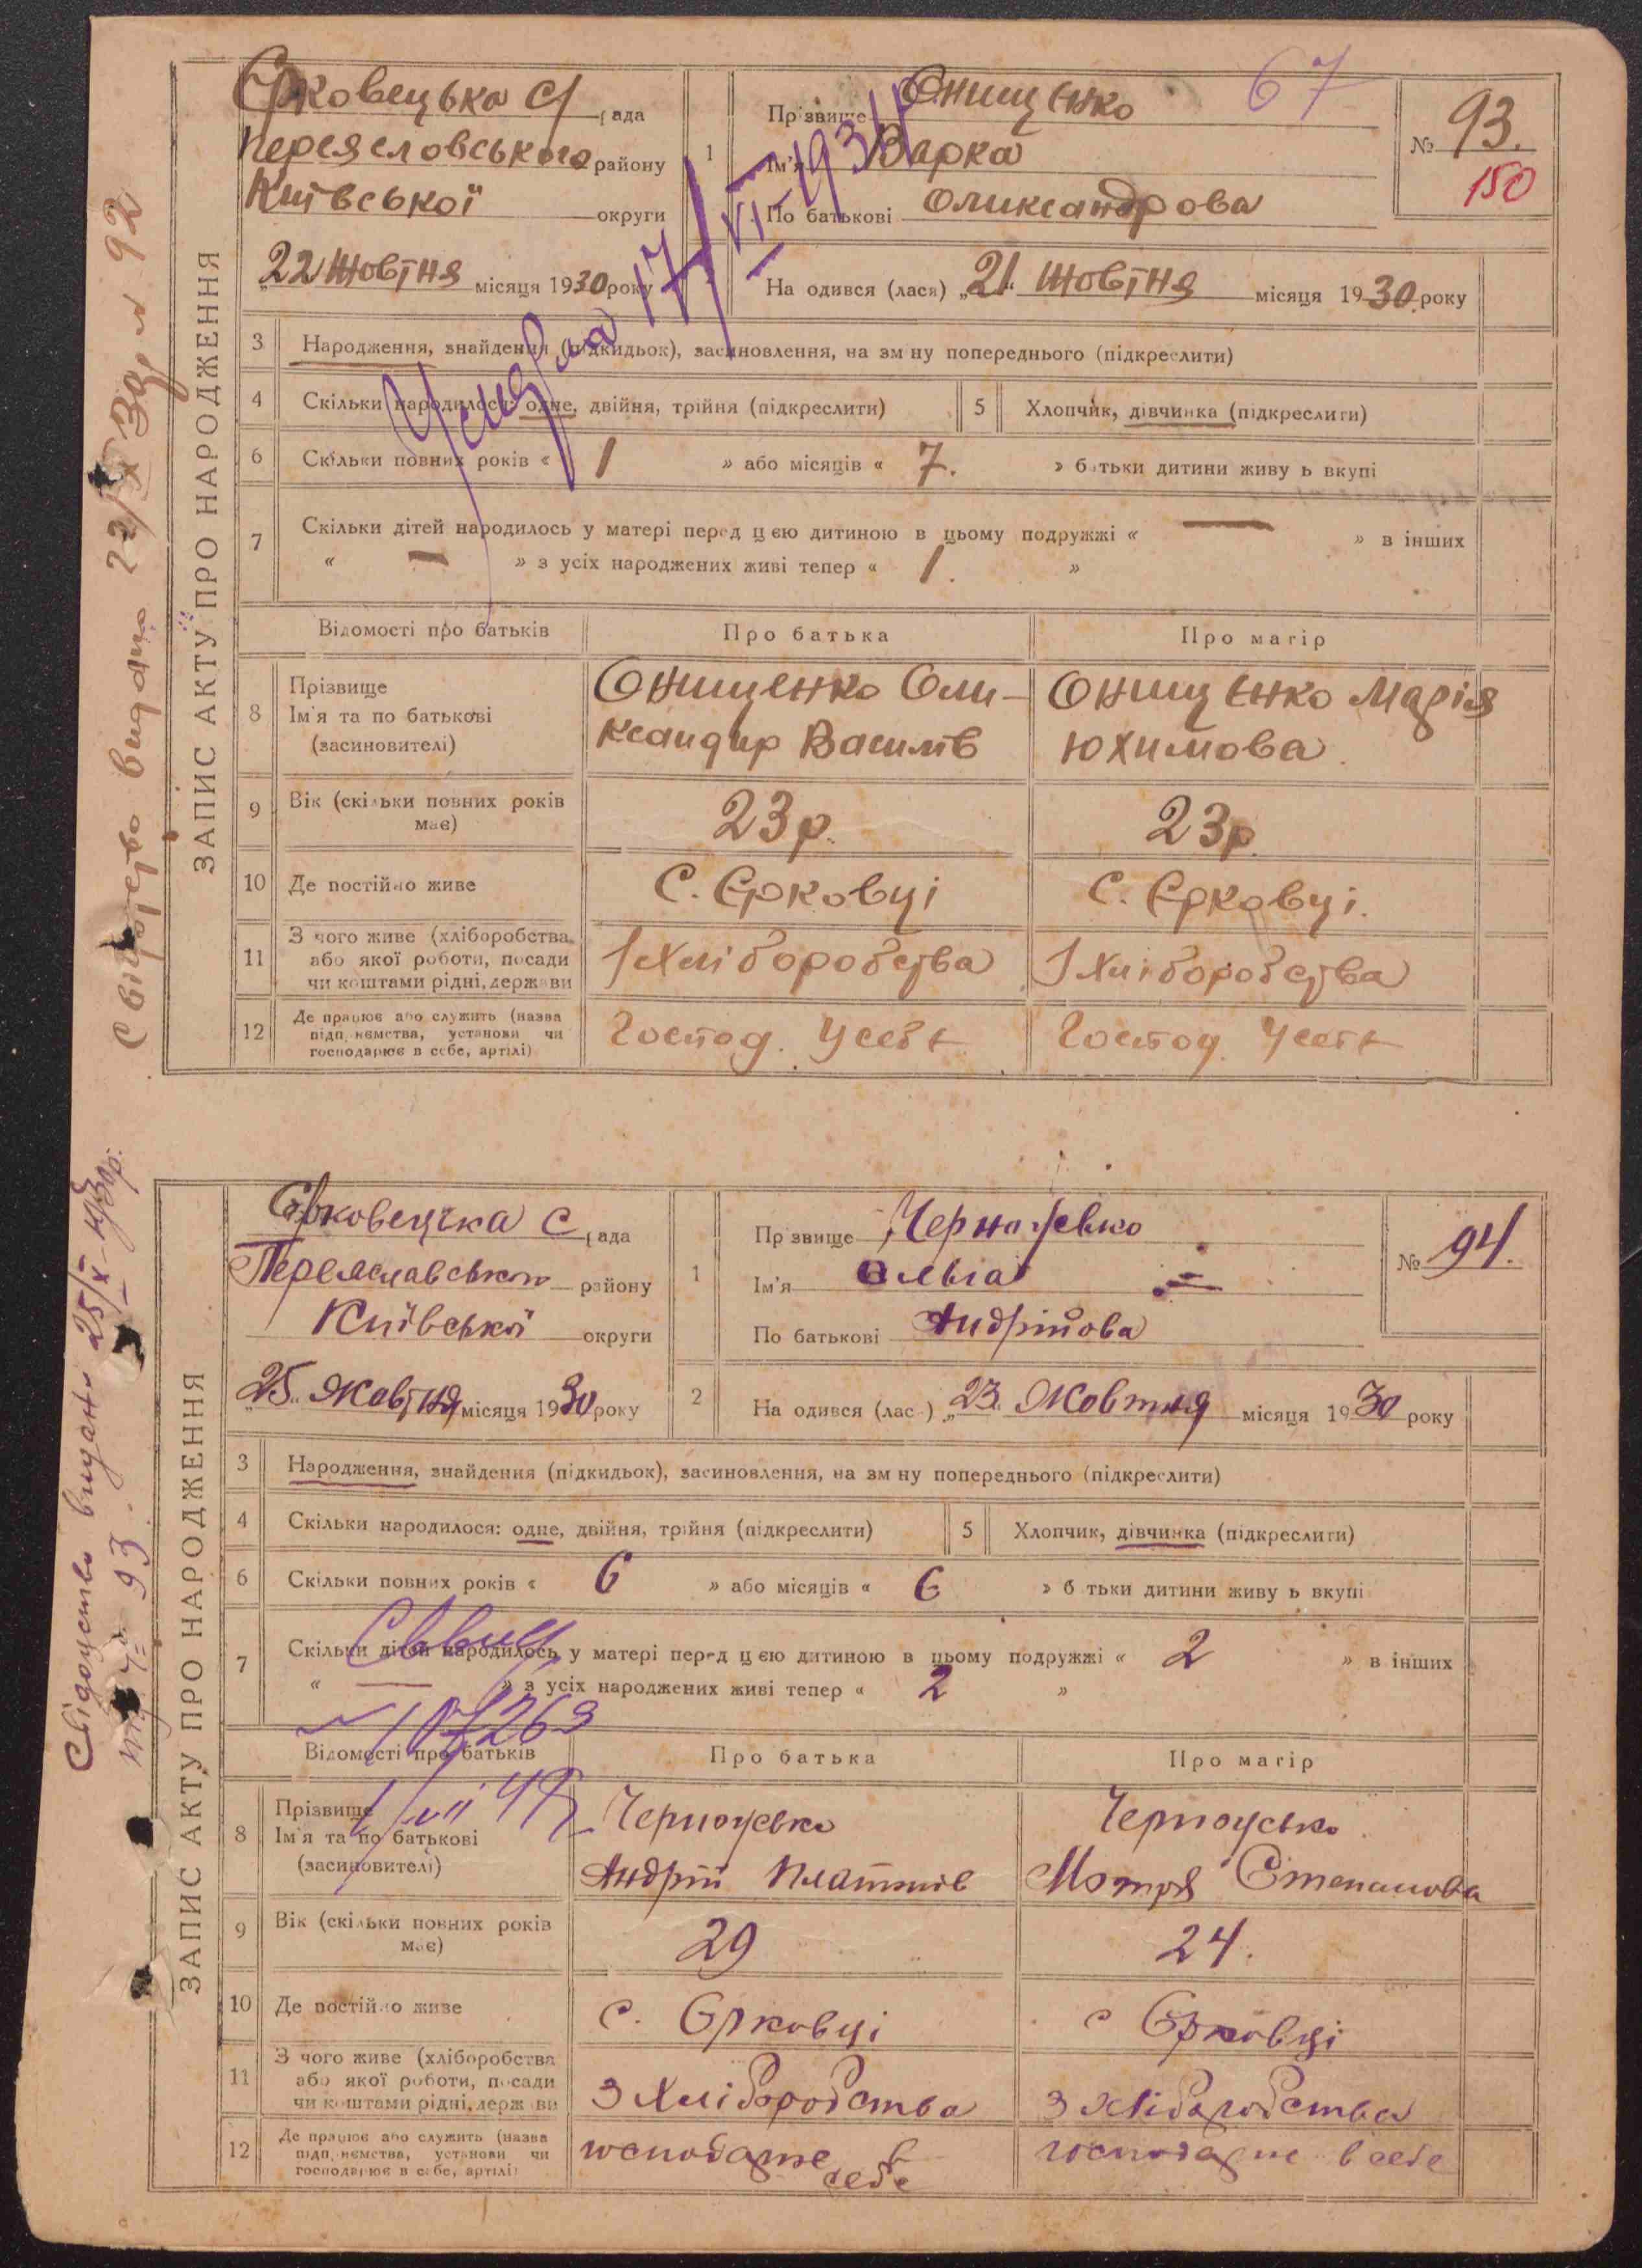 67
Ярковецька С/рада
Переяславського району
Київської округи
1
Прізвище Онищенко
Ім'я Варка
По батькові Олександрова
№ 93.
150
„22 Жовтня місяця 1930 року
На одився (лася) „21" Жовтня місяця 1930 року
Умерла 17/VI-1934
3 Народження, знайдення (підкидьок), засиновлення, на зм ну попереднього (підкреслити)
4 Скільки народилося: одне, двійня, трійня (підкреслити)
5 Хлопчик, дівчинка (підкреслити)
6 Скільки повних років « 1 » або місяців « 7. » батьки дитини живу ь вкупі
7 Скільки дітей народилось у матері перед цією дитиною в цьому подружжі « — » в інших
« — » з усіх народжених живі тепер « 1. »
Відомості про батьків
Про батька
Про матір
8 Прізвище
Ім'я та по батькові
(засиновителі)
Онищенко Оли-
ксандир Василів
Онищенко Марія
Юхимова
9 Вік (скільки повних років
має)
23 р.
23 р
10 Де постійно живе
С. Єрковці
С. Єрковці.
11 З чого живе (хліборобства
або якої роботи, посади
чи коштами рідні, держави
З Хліборобства
З Хліборобства
12 Де працює або служить (назва
підп, ємства, установи чи
господарює в себе, артілі)
Господ. У себе
Господ. У себе
ЗАПИС АКТУ ПРО НАРОДЖЕННЯ
Свідоцтво видано 22/X 30 р № 92
Єрковецька С рада
Переяславського району
Київської округи
1
Пр звище Черноусько
Ім'я Ольга
По батькові Андрійова
№ 94.
„25" Жовтня місяця 1930 року
2
На одився (лас ) „23. Жовтня місяця 1930 року
3 Народження, знайдення (підкидьок), засиновлення, на зм ну попереднього (підкреслити)
4 Скільки народилося: одне, двійня, трійня (підкреслити)
5 Хлопчик, дівчинка (підкреслити)
6 Скільки повних років « 6 » або місяців « 6 » б тьки дитини живу ь вкупі
7 Скільки дітей народилось у матері перед цією дитиною в цьому подружжі « 2 » в інших
« — » з усіх народжених живі тепер « 2 »
Відомості про батьків
Про батька
Про матір
8 Прізвище
Ім'я та по батькові
(засиновителі)
Черноусько
Андрій Платонів
Черноусько
Мотря Степанова
9 Вік (скільки повних років
має)
29
24.
10 Де постійно живе
с. Єрковці
с Єрковці
11 З чого живе (хліборобства
або якої роботи, посади
чи коштами рідні, держ ви
З Хліборобства
З Хліборобства
12 Де працює або служить (назва
підп, ємства, установи чи
господарює в себе, артілі)
господарює в себе
господарює в себе
ЗАПИС АКТУ ПРО НАРОДЖЕННЯ
Свідоцтво видано 25/X-1930р.
93.